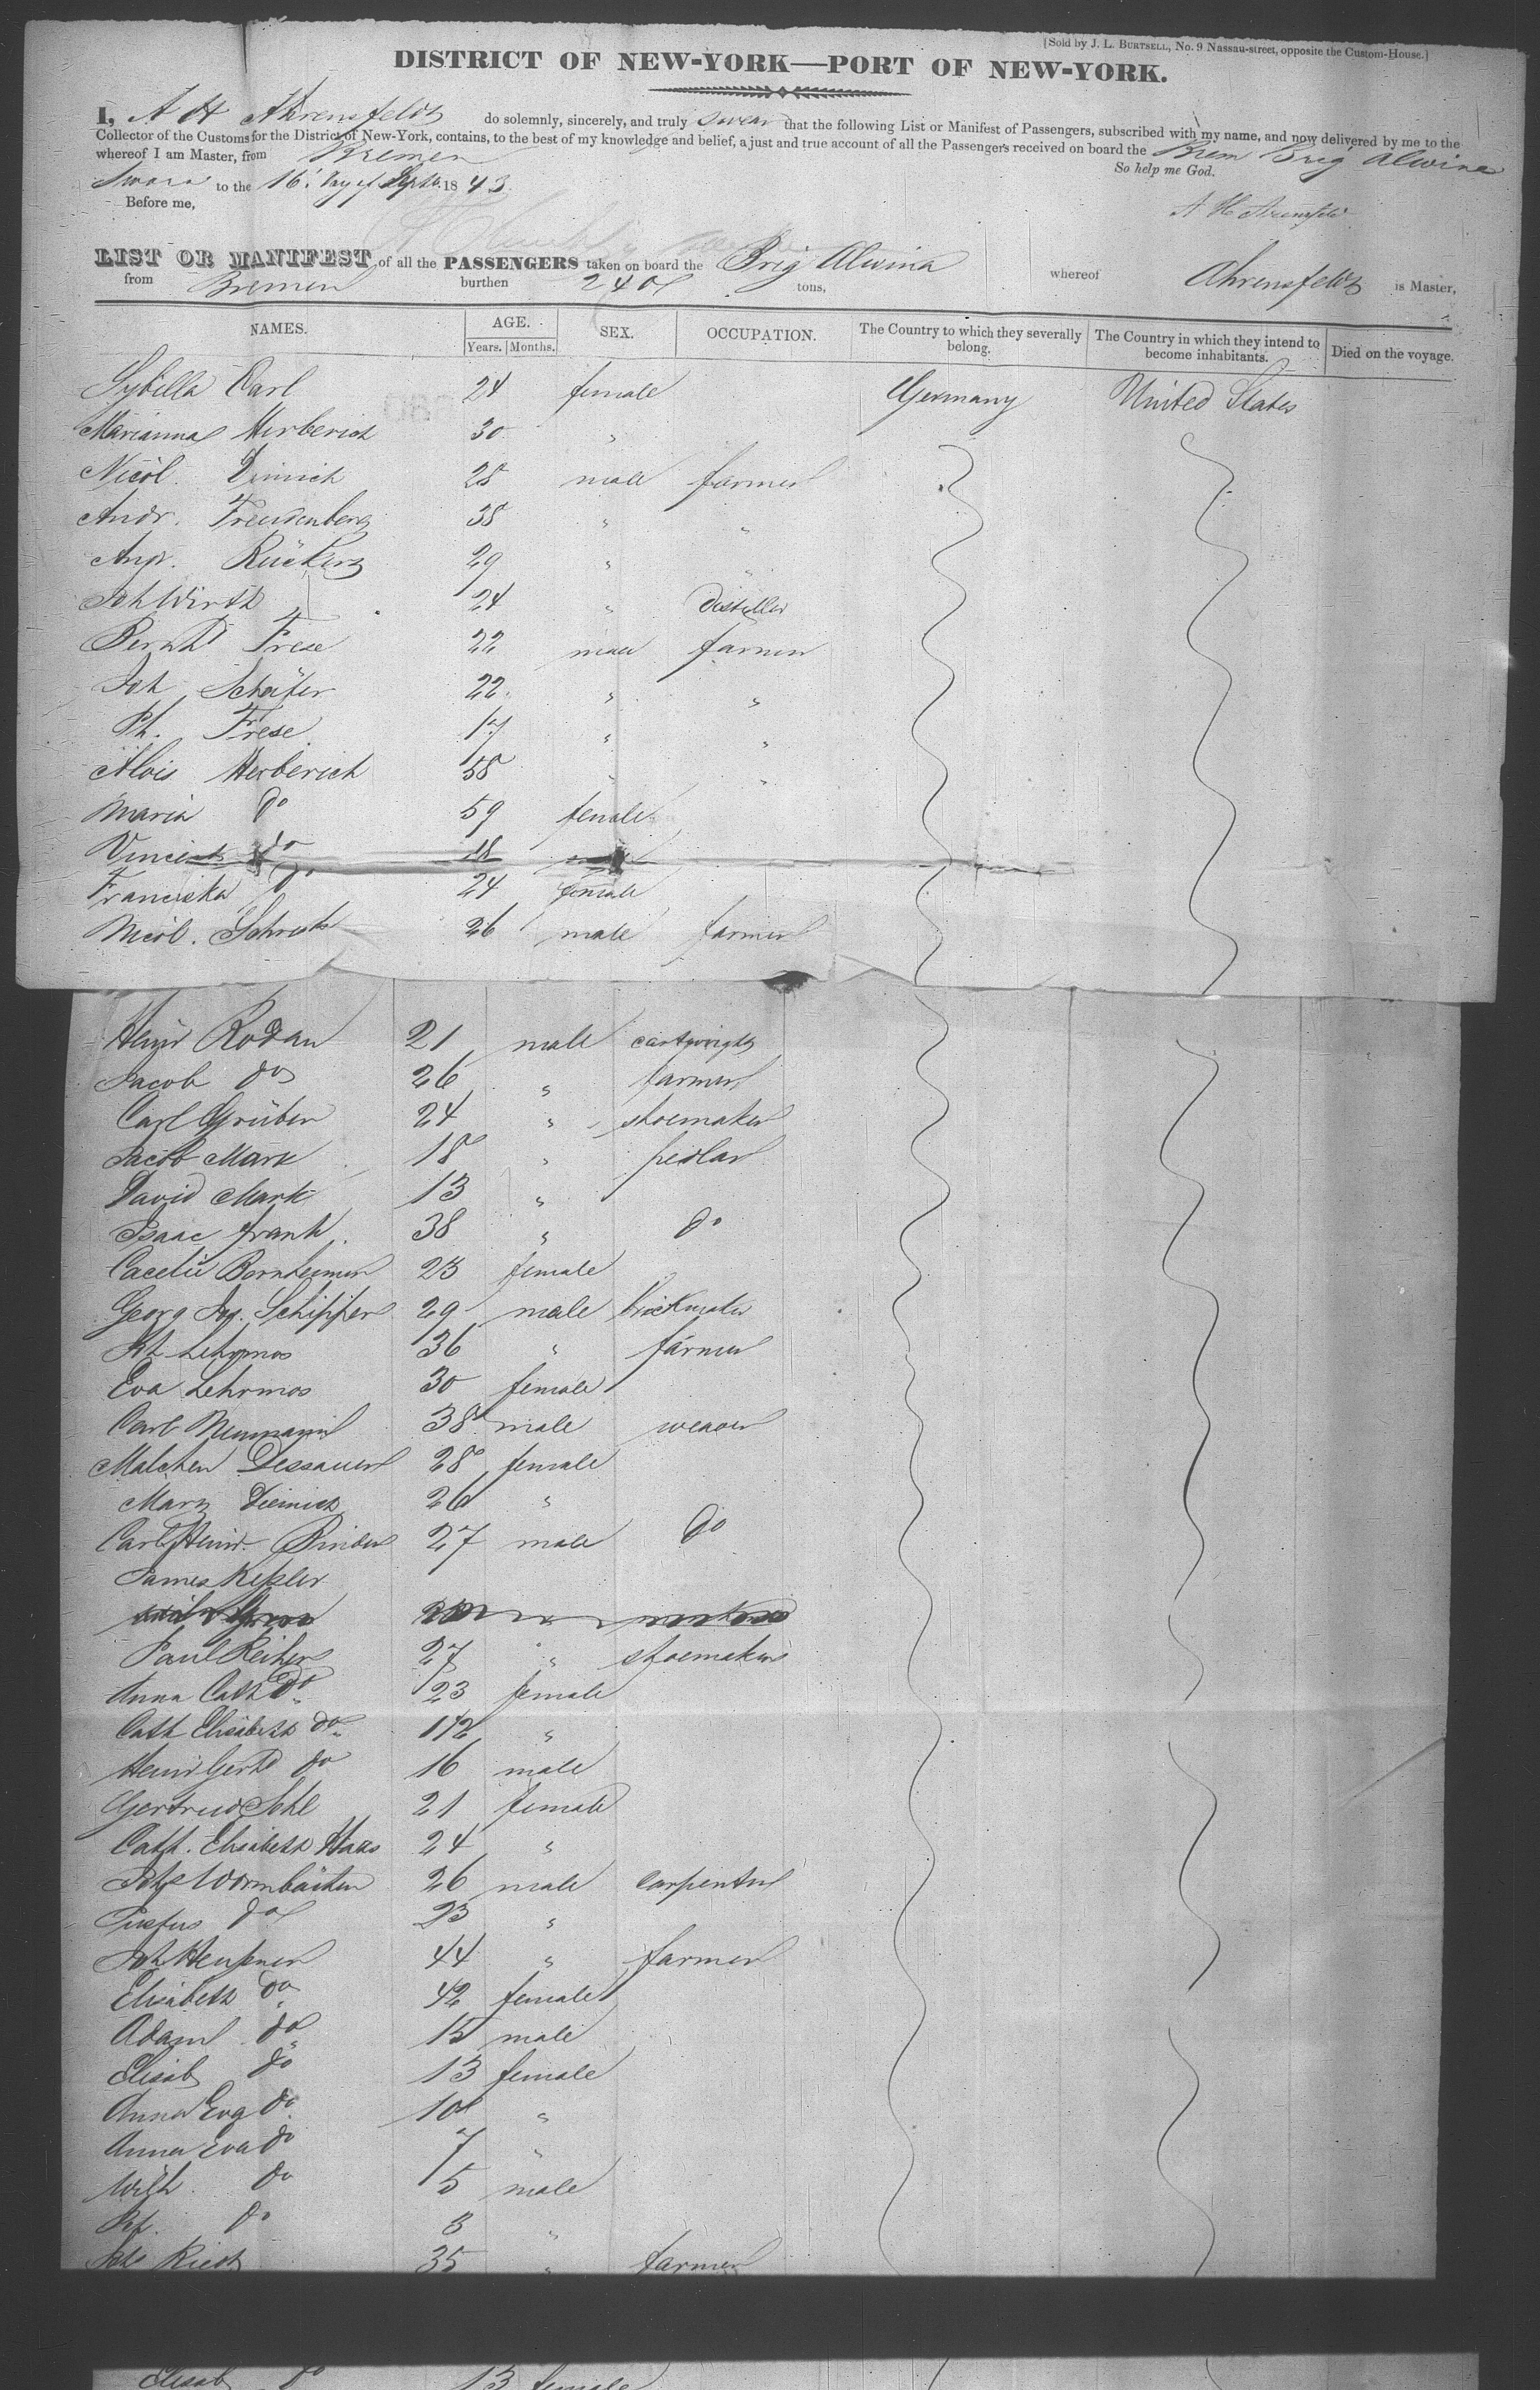 [Sold by J. L. BURTSELL, No. 9 Nassau-street, opposite the Custom-House.]
DISTRICT OF NEW-YORK—PORT OF NEW-YORK.
I, A H Ahrensfeldt do solemnly, sincerely, and truly swear that the following List or Manifest of Passengers, subscribed with my name, and now delivered by me to the
Collector of the Customs for the District of New-York, contains, to the best of my knowledge and belief, a just and true account of all the Passengers received on board the Brem Brig Alwina
whereof I am Master, from Bremen
So help me God.
Sworn to the 16 Day of Septb. 1843
Before me,
LIST OR MANIFEST of all the PASSENGERS taken on board the Brig Alwina whereof Ahrensfeldt is Master,
from Bremen burthen 240 tons,
NAMES. AGE. SEX. OCCUPATION. The Country to which they severally belong. The Country in which they intend to become inhabitants. Died on the voyage.
Years. Months.
Sybilla Carl 24 female Germany United States
Marianna Herberich 30 "
Nicol. Dimich 28 male farmer
Andr. Freudenberg 38 " "
Andr. Rückerz 29 " "
Joh Wirth 24 " distiller
Bernhd Frese 22 male farmer
Joh Schäfer 22 " "
Ph. Frese 17 " "
Alois Herberich 58 " "
Maria do 59 female
Vincent do 18
Franciska do 24 female
Nicol. 26 male farmer
Heinr Rodan 21 male cartwright
Jacob do 26 " farmer
Carl Grüber 24 " shoemaker
Jacob Mark 18 " pedlar
David Mark 13 "
Isaac Frank 38 " do
Bornheimer 23 female
Georg Schipper 29 male brickmaker
Lehrmos 36 " farmer
Eva Lehrmos 30 female
Carl Neumann 38 male weaver
Malchen Dessauer 28 female
Mary Diemich 26 "
Carl Heinr. Binder 27 male do
James Kepler
Paul Reiher 27 " shoemaker
Anna Cath do 23 female
Cath Elisabeth do 1 1/2 "
Heinr Gerhd do 16 male
Gertrud Sohl 21 female
Cath. Elisabeth Haas 24 "
Joh Wormbächer 26 male carpenter
Justus do 23 "
Joh Heupner 44 " farmer
Elisabeth do 42 female
Adam do 15 male
Elisab do 13 female
Anna Eva do 10 "
Anna Eva do 7 "
Wilh. do 5 male
do 3 "
Joh Riedt 35 " farmer
Elisab do 13 female